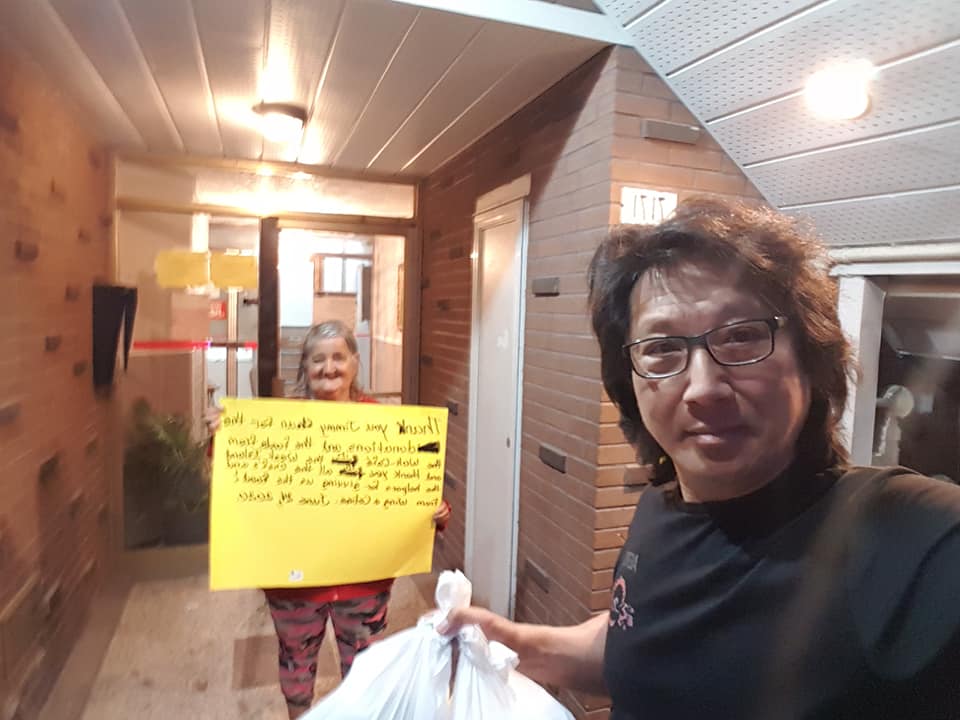 Thank you Jimmy Chan for the
donations and the foods from
the Wok-Cafe the West Island
and thank you all the chefs and
the helpers for giving us the food!
From June 24, 2020